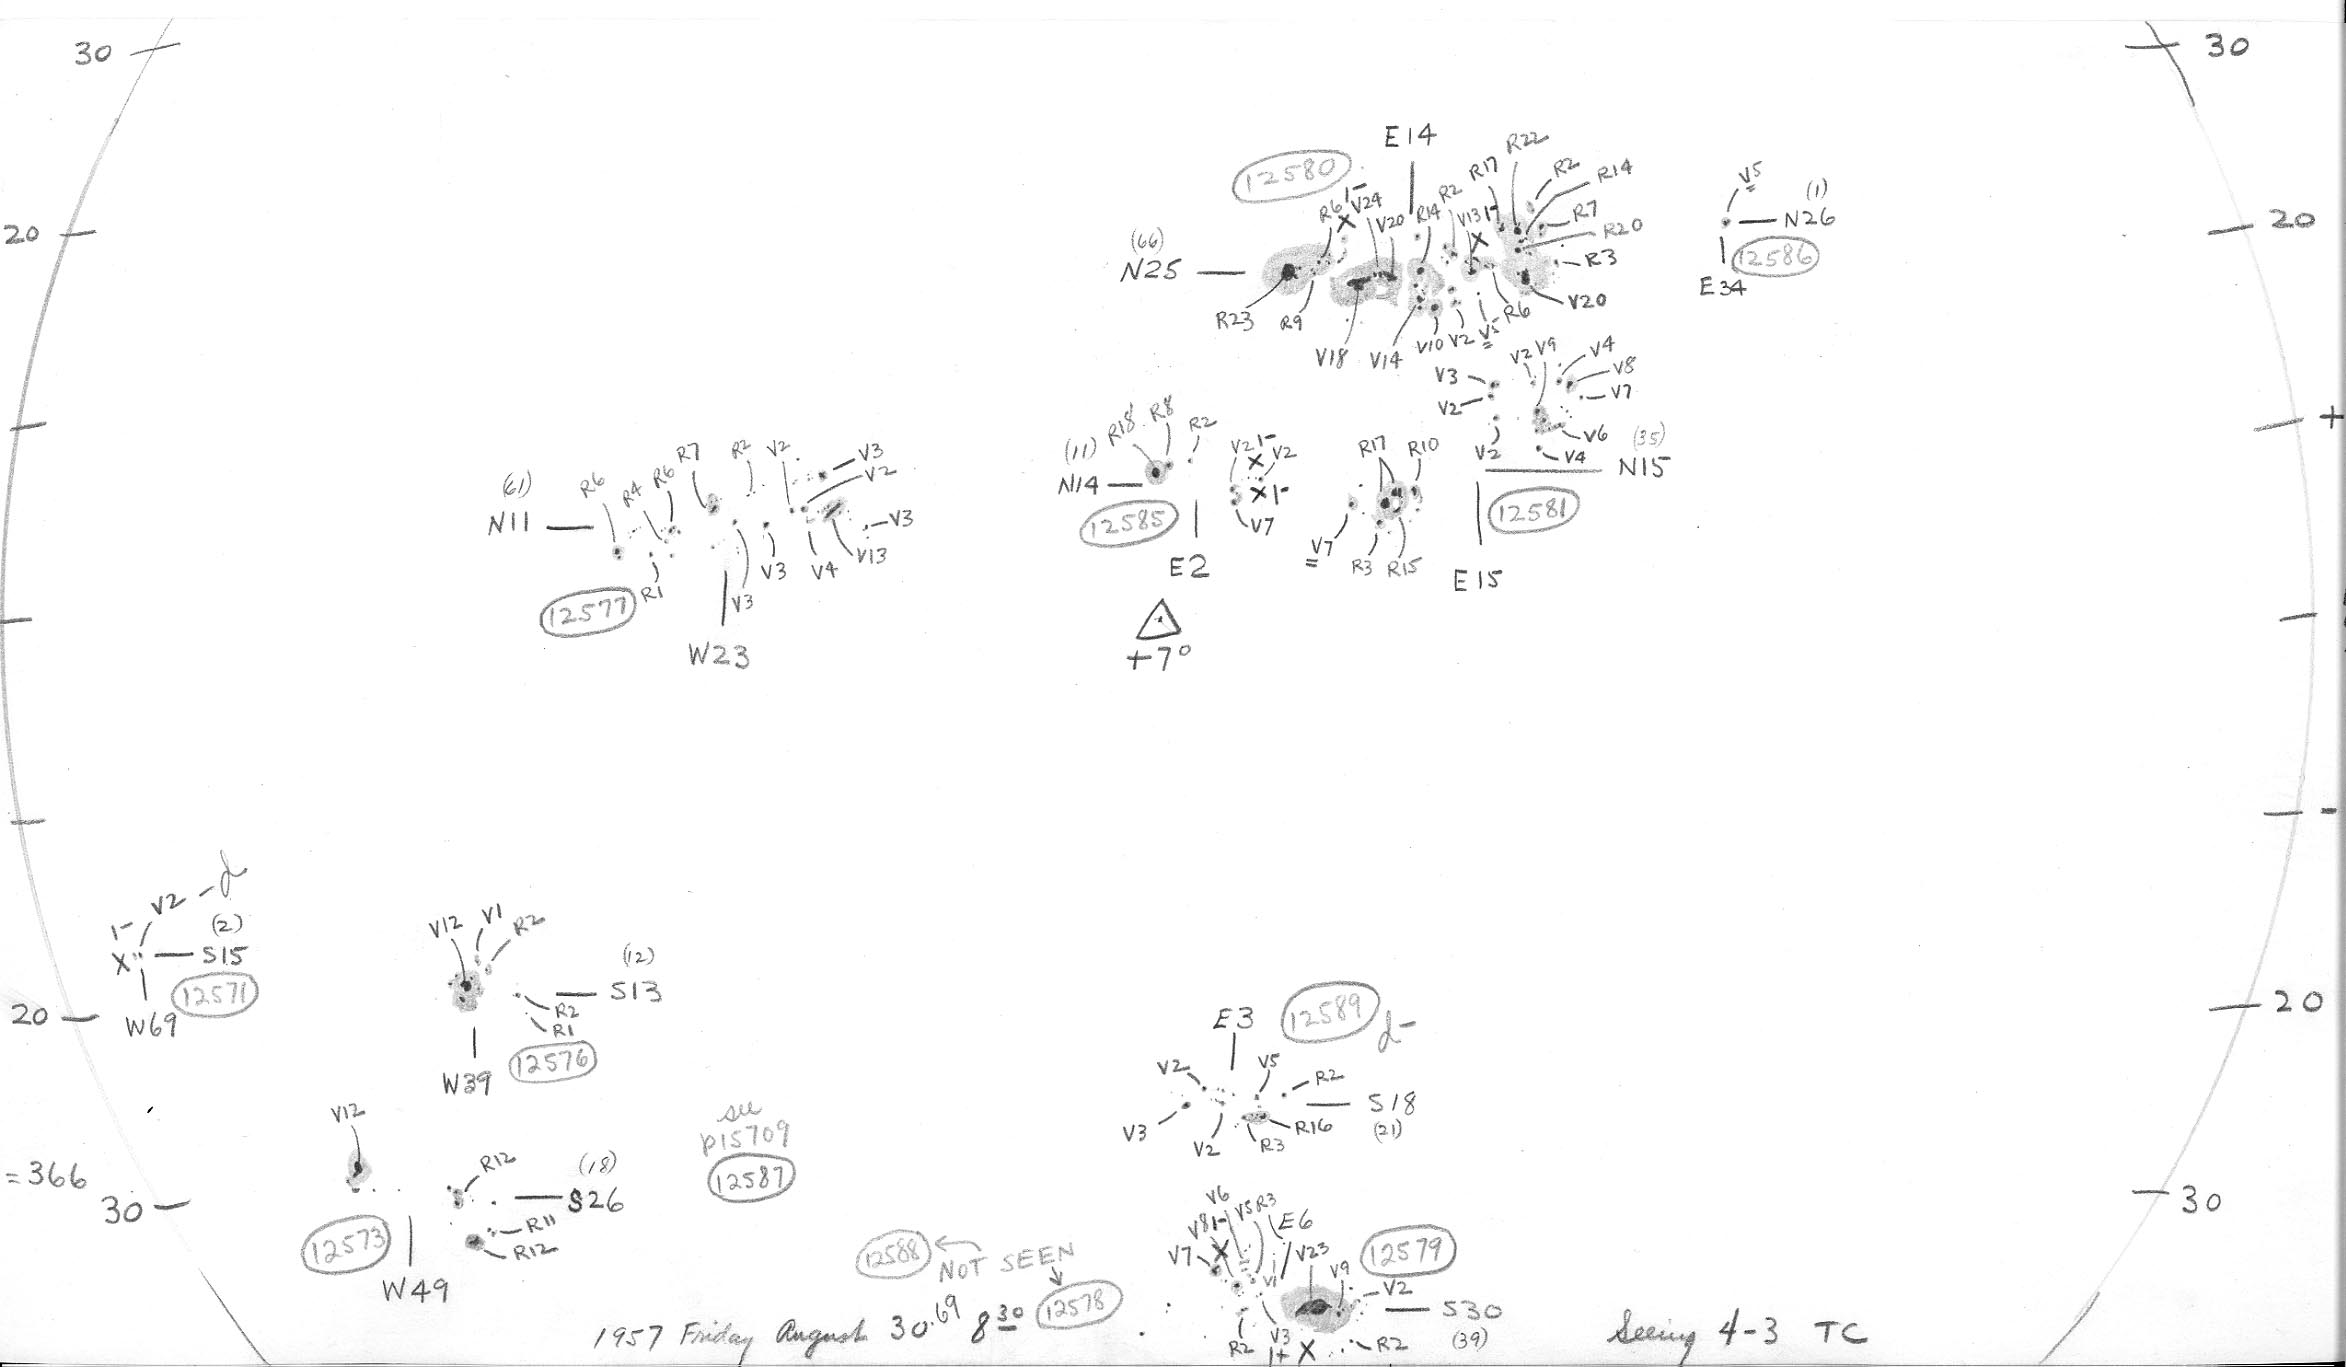 30
30
E14
R22
R17
R2
R14
12580
R6
1-
X
V24
V20
R14
R2
V13
1-
X
R7
R20
R3
V5
(1)
N26
12586
E34
20
20
(66)
N25
R23
R9
V18
V14
V10
V2
V5
R6
V20
V2
V9
V4
V8
V7
V3
V2
V2
V6
V4
(35)
N15
12581
E15
(11)
N14
R18
R8
R2
12585
E2
V2
1-
X
V2
X 1-
V7
R17
R10
V7
=
R3
R15
(61)
N11
R6
R4
R6
R7
R2
V2
V3
V2
V3
V13
V4
V3
V3
R1
12577
W23
+
+7°
-
V2 - d
1-
X
(2)
S15
12571
W69
20
20
V12
V1
R2
(12)
S13
R2
R1
12576
W39
E3
12589
d-
V2
V5
R2
S18
(21)
V3
V2
R3
R16
V12
R12
(18)
S26
R11
R12
12573
W49
see
p15709
12587
= 366
30
30
V6
V8
1-
X
V5
R3
E6
V7
V1
V23
V9
12579
V2
S30
(39)
R2
V3
1+ X
R2
12588
NOT SEEN
12578
1957 Friday August 30.69 8 30
Seeing 4-3 TC